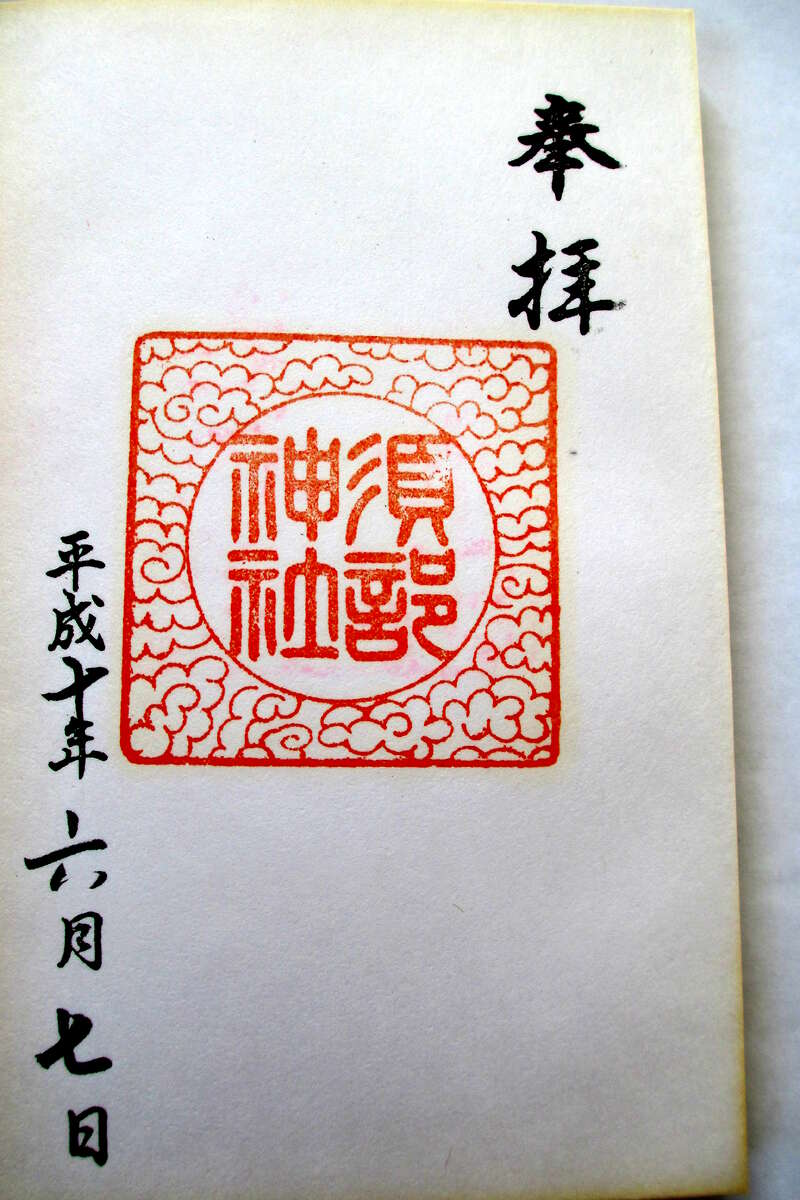 奉拝
須部
神社
平成十年六月七日